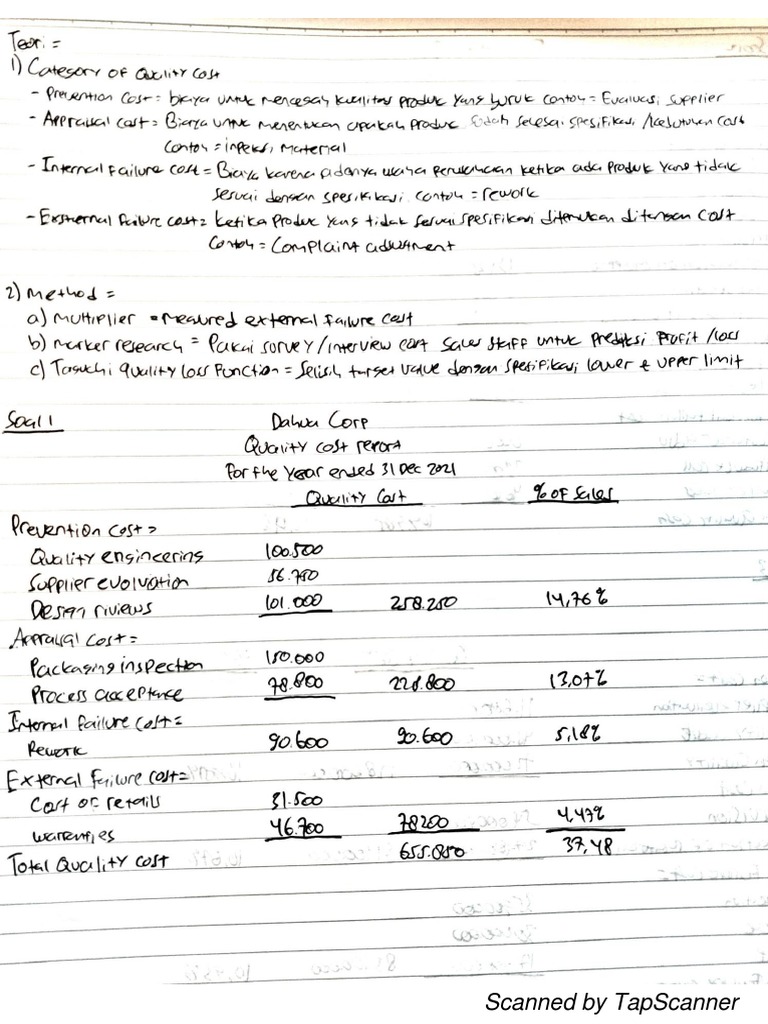 Teori =
1) Category of Quality Cost
- Prevention Cost = biaya untuk mencegah kualitas produk yang buruk contoh = Evaluasi supplier
- Appraisal cost = Biaya untuk menentukan apakah produk sesuai spesifikasi /kebutuhan cust
contoh = inpeksi material
- Internal failure cost = Biaya karena adanya usaha perusahaan ketika ada produk yang tidak
sesuai dengan spesifikasi contoh = rework
- External failure cost = ketika produk yang tidak sesuai spesifikasi ditemukan ditangan cust
contoh = complaint adjustment
2) Method =
a) Multiplier = Meaured external failure cost
b) market research = Pakai survey/interview cust sales staff untuk prediksi profit /loss
c) Taguchi quality loss function = selisih target value dengan spesifikasi lower & upper limit
Soal 1 Dahua Corp
Quality cost report
For the Year ended 31 Dec 2021
Quality Cost % of sales
Prevention cost =
Quality engineering 100.500
Supplier evaluation 56.750
Design riviews 101.000 258.250 14,76%
Appraisal cost =
Packaging inspection 150.000
Process acceptance 78.800 228.800 13,07%
Internal failure cost =
Rework 90.600 90.600 5,18%
External failure cost =
Cost of retails 31.500
warenties 46.700 78200 4,47%
Total Quality cost 655.850 37,48
Scanned by TapScanner